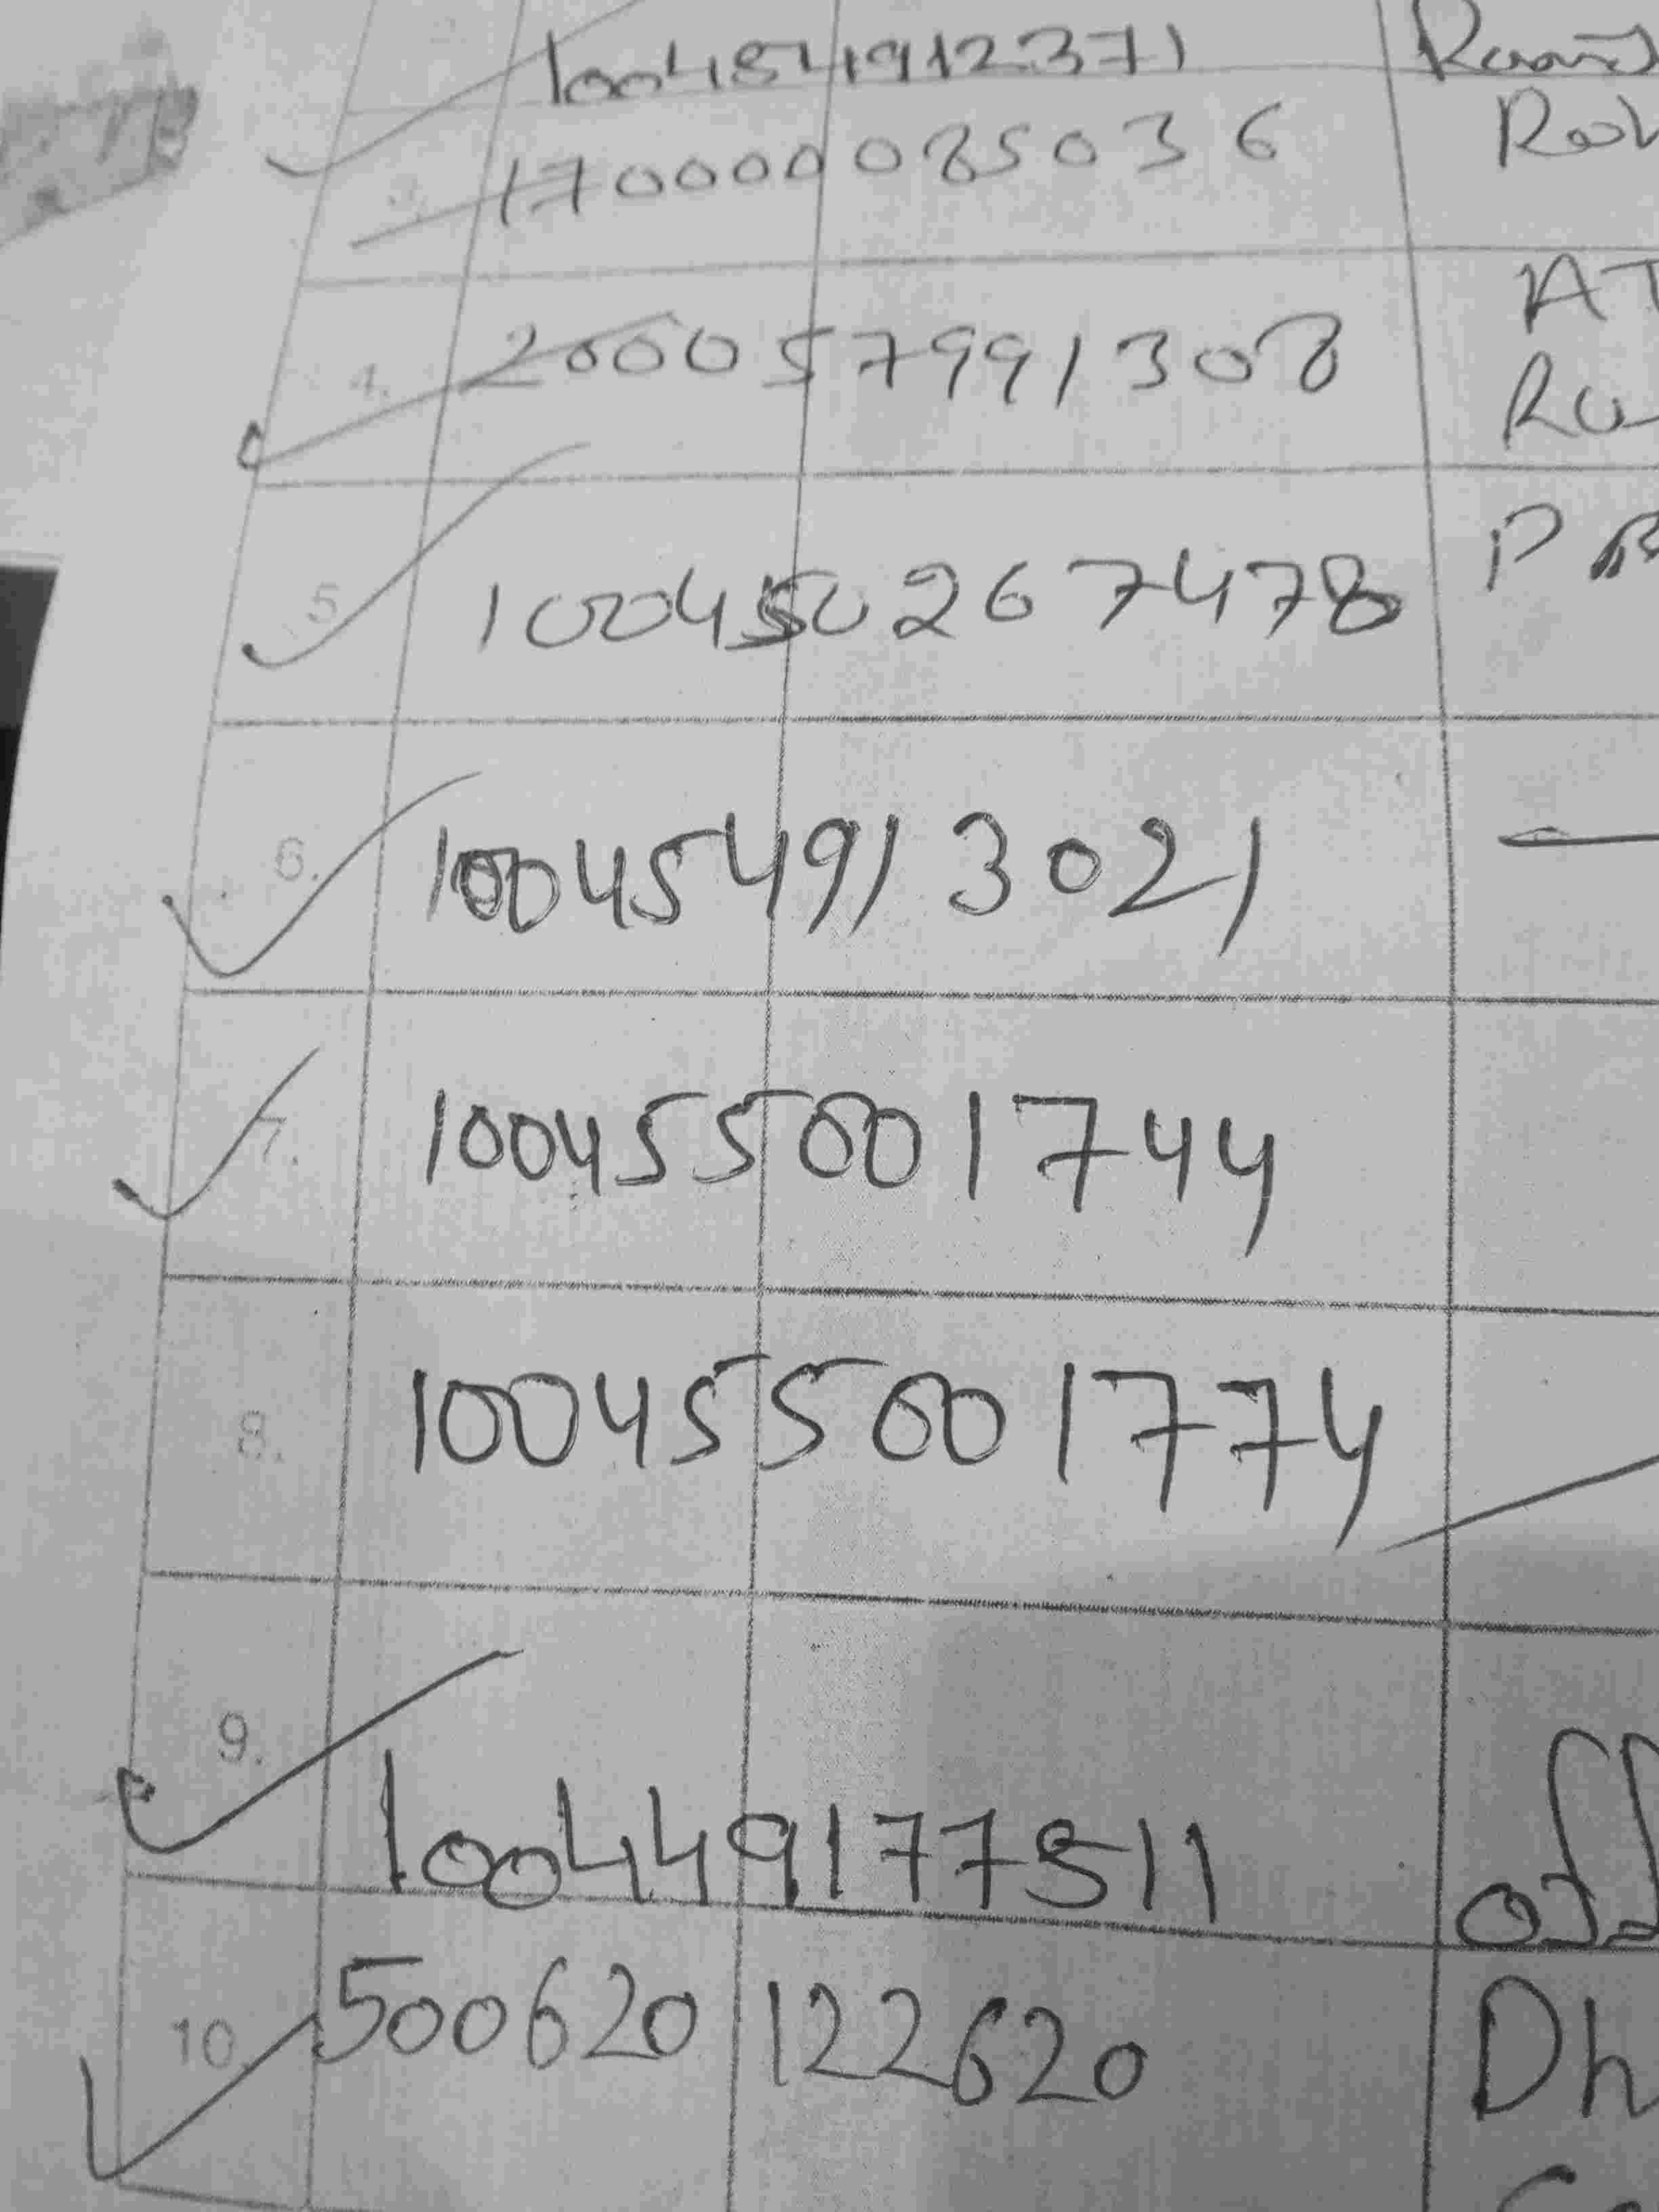 100454912371 Ramis
3. 170000085036 Roh
4. 200057991308 AT
Ru
5. 100450267478 PB
6. 100454913021
7. 100455001744
8. 100455001774
9. 100449177511 off
10. 500620122620 Dh